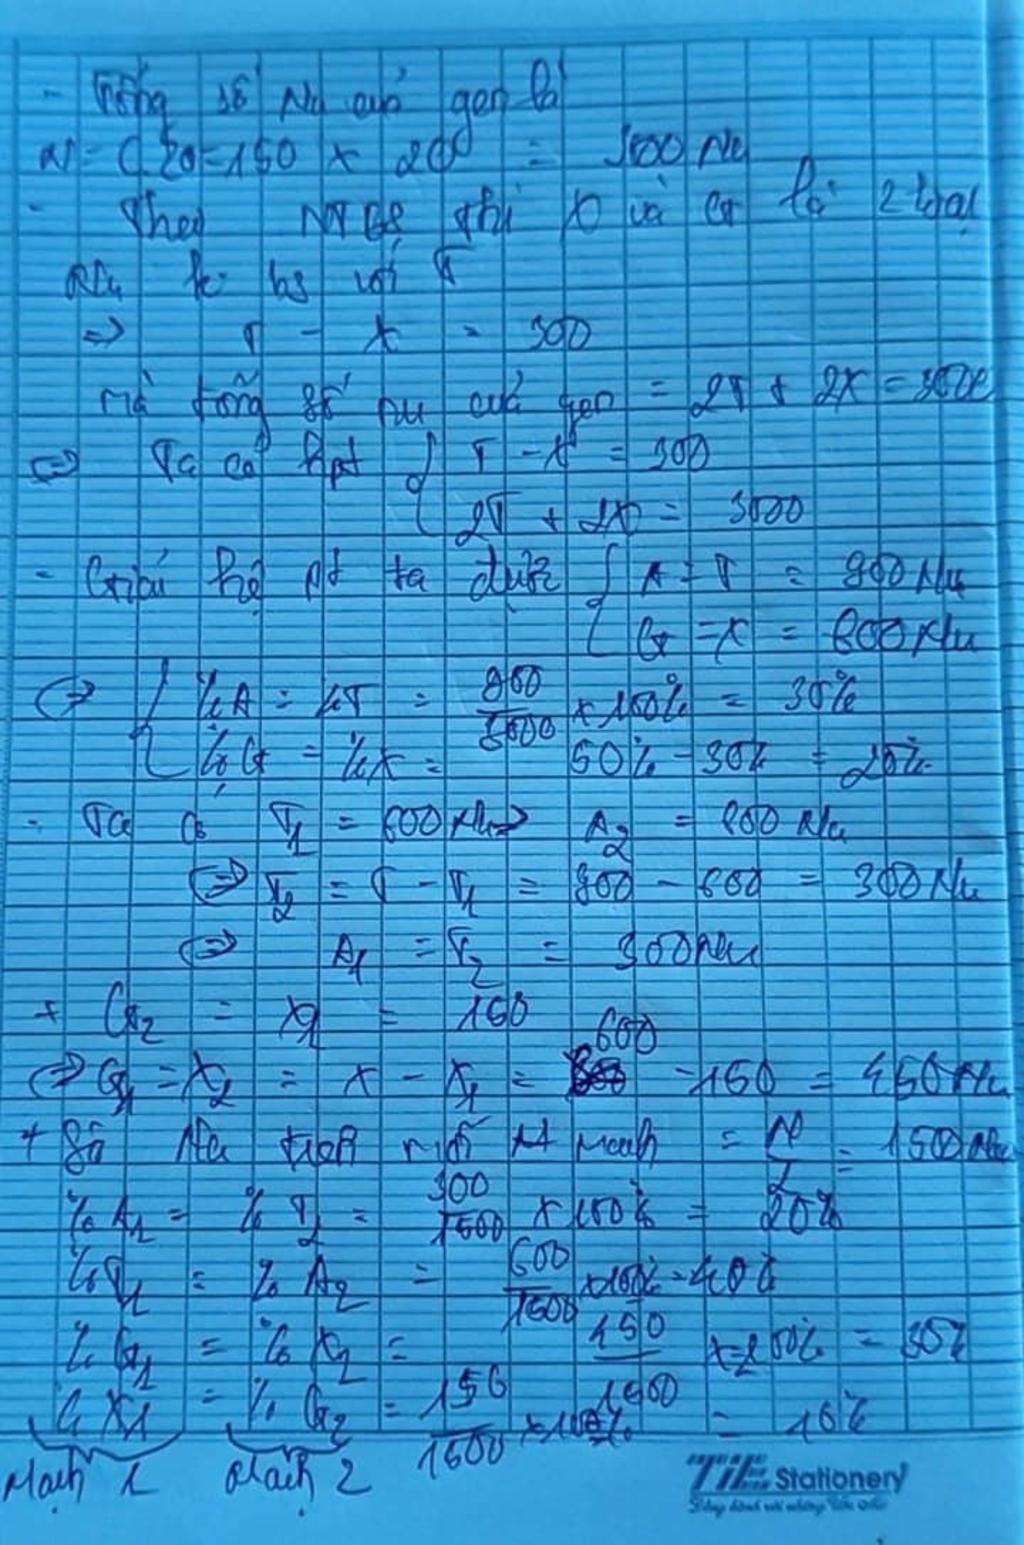 - Tổng số Nu của gen là
N = C.20 = 150 x 20 = 3000 Nu
- Theo NTBS thì X và G là 2 loại
Nu k bs với T
=> T - X = 300
mà tổng số nu của gen = 2T + 2X = 3000
=> Ta có hpt { T - X = 300
2T + 2X = 3000
- Giải hệ pt ta được { A = T = 900 Nu
G = X = 600 Nu
=> { %A = %T = 900/3000 x 100% = 30%
%G = %X = 50% - 30% = 20%
- Ta có T1 = 600 Nu => A2 = 600 Nu
=> T2 = T - T1 = 900 - 600 = 300 Nu
=> A1 = T2 = 300 Nu
+ G2 = X1 = 150
=> G1 = X2 = X - X1 = 600 - 150 = 450 Nu
+ Số Nu trên mỗi mạch = N/2 = 1500 Nu
%A1 = %T2 = 300/1500 x 100% = 20%
%T1 = %A2 = 600/1500 x 100% = 40%
%G1 = %X2 = 450/1500 x 100% = 30%
%X1 = %G2 = 150/1500 x 100% = 10%
Mạch 1 Mạch 2
TTL Stationery